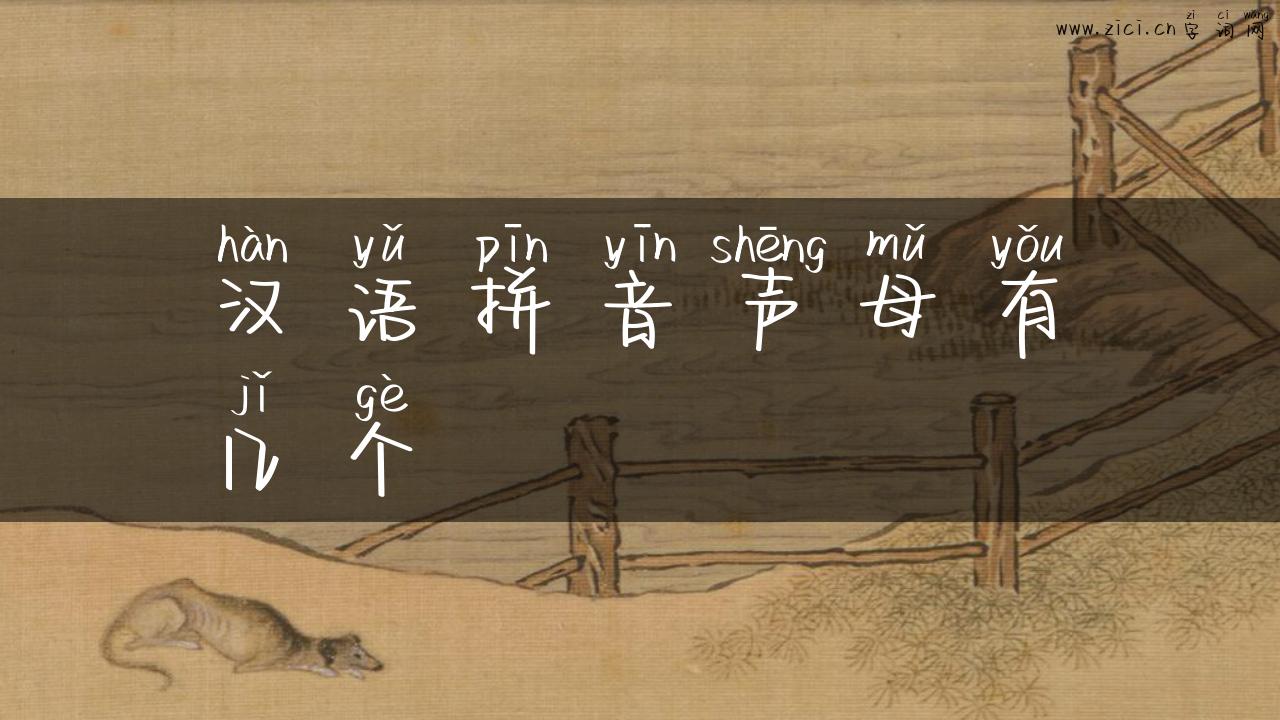 zi ci wang
www.zici.cn 字词网
hàn yǔ pīn yīn shēng mǔ yǒu
汉语拼音声母有
jǐ gè
几个